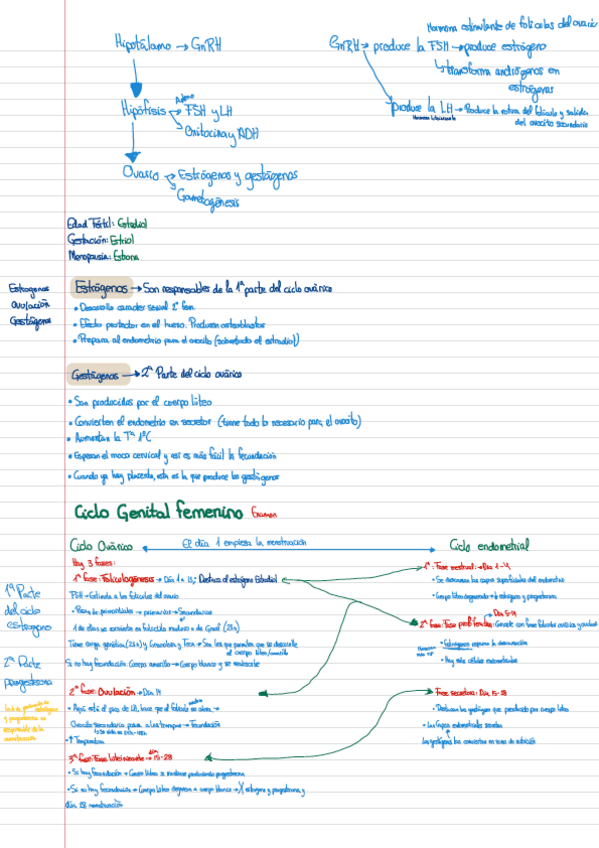 Hormona estimulante de folículos del ovario
Hipotálamo → GnRH
GnRH → produce la FSH → produce estrógeno
transforma andrógenos en
estrógenos
Hipófisis → FSH y LH
Oxitocina y ADH
produce la LH → Produce la rotura del folículo y salida
del ovocito secundario
Hormona luteinizante
Ovario → Estrógenos y gestágenos
Gametogénesis
Edad Fértil: Estradiol
Gestación: Estriol
Menopausia: Estrona
Estrogenos
ovulación
Gestágeno
Estrógenos → Son responsables de la 1ª parte del ciclo ovárico
• Desarrollo caracter sexual 2º fem
• Efecto protector en el hueso. Producen osteoblastos
• Prepara al endometrio para el ovocito (sobretodo el estradiol)
Gestágenos → 2ª Parte del ciclo ovárico
• Son producidos por el cuerpo lúteo
• Convierten el endometrio en secretor (tiene todo lo necesario para el ovocito)
• Aumentan la Tª 1ºC
• Espesan el moco cervical y así es más fácil la fecundación
• Cuando ya hay placenta, esta es la que produce los gestágenos
Ciclo Genital femenino Examen
Ciclo Ovárico
El día 1 empieza la menstruación
Ciclo endometrial
Hay 3 fases:
1ª fase: Foliculogénesis → Día 1 a 13; Destaca el estrógeno Estradiol
FSH → Estimula a los folículos del ovario
primarios → Secundarios
1 de ellos se convierte en folículo maduro o de Graaf
Si no hay fecundación: Cuerpo amarillo → Cuerpo blanco y se
1ª Parte
del ciclo
estrogeno
2ª Parte
progesterona
1ª: Fase menstrual: → Día 1-4
• Se descaman las capas superficiales del endometrio
• Cuerpo lúteo degenerado → estrógenos y progesterona
Día 5-14
2ª fase: Fase proliferativa: Coincide con fase folicular ovárica y
• Estrógenos
• Hay más células endometriales
2ª fase: Ovulación → Día 14
• Aquí está el pico de LH, hace que el folículo
Ovocito secundario pasa a las trompas → Fecundación
• ↑ Temperatura
Fase secretora: Día 15-28
• Destacan los gestágenos que producido por cuerpo lúteo
• Las capas endometriales
3ª fase: Fase luteinizante → día 15-28
• Si hay fecundación → Cuerpo lúteo se mantiene produciendo progesterona
• Si no hay fecundación → Cuerpo lúteo degenera a cuerpo blanco → X estrógeno y progesterona, y
día 28 menstruación